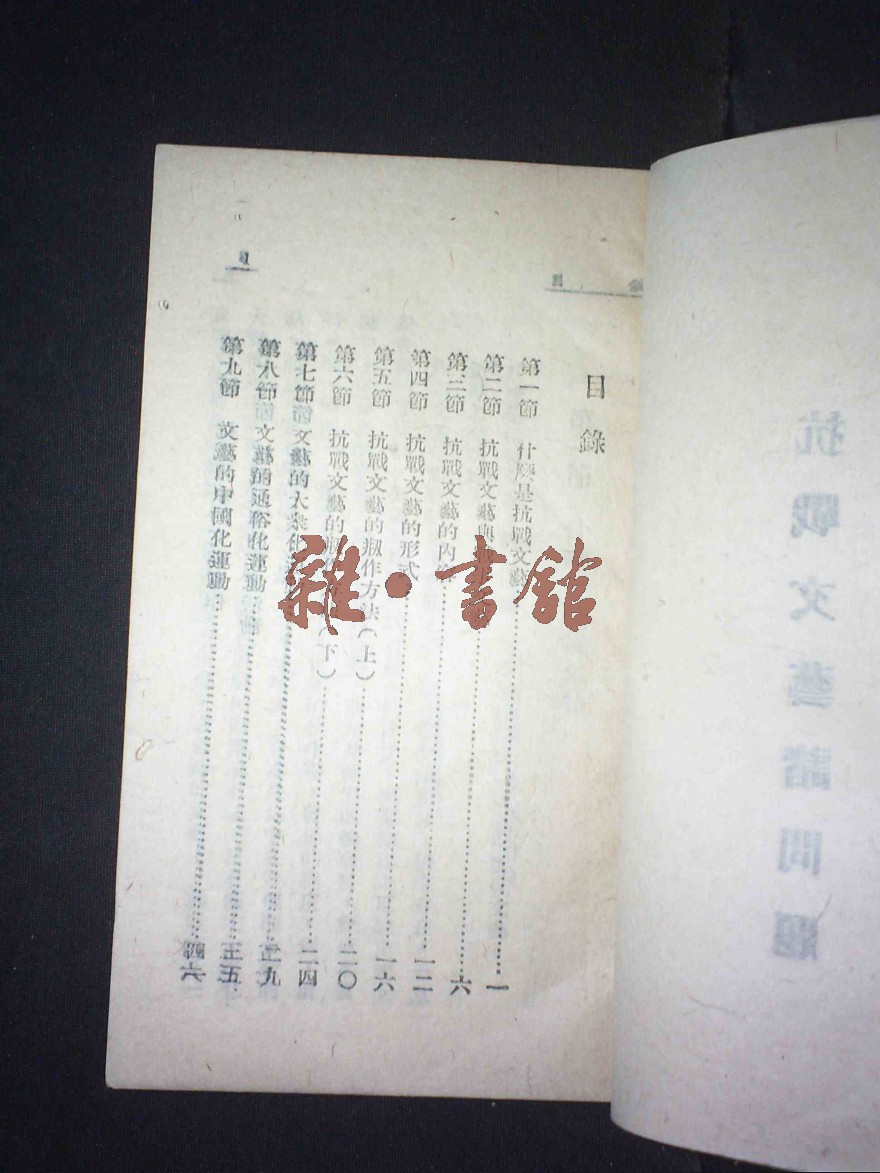 抗戰文藝諸問題
目錄
第一節 什麼是抗戰文藝……一
第二節 抗戰文藝與……六
第三節 抗戰文藝的內容……一二
第四節 抗戰文藝的形式……一六
第五節 抗戰文藝的剏作方法(上)……二〇
第六節 抗戰文藝的剏作(下)……二四
第七節 文藝的大衆化……九
第八節 文藝的通俗化運動……三五
第九節 文藝的中國化運動……四六
雜·書館